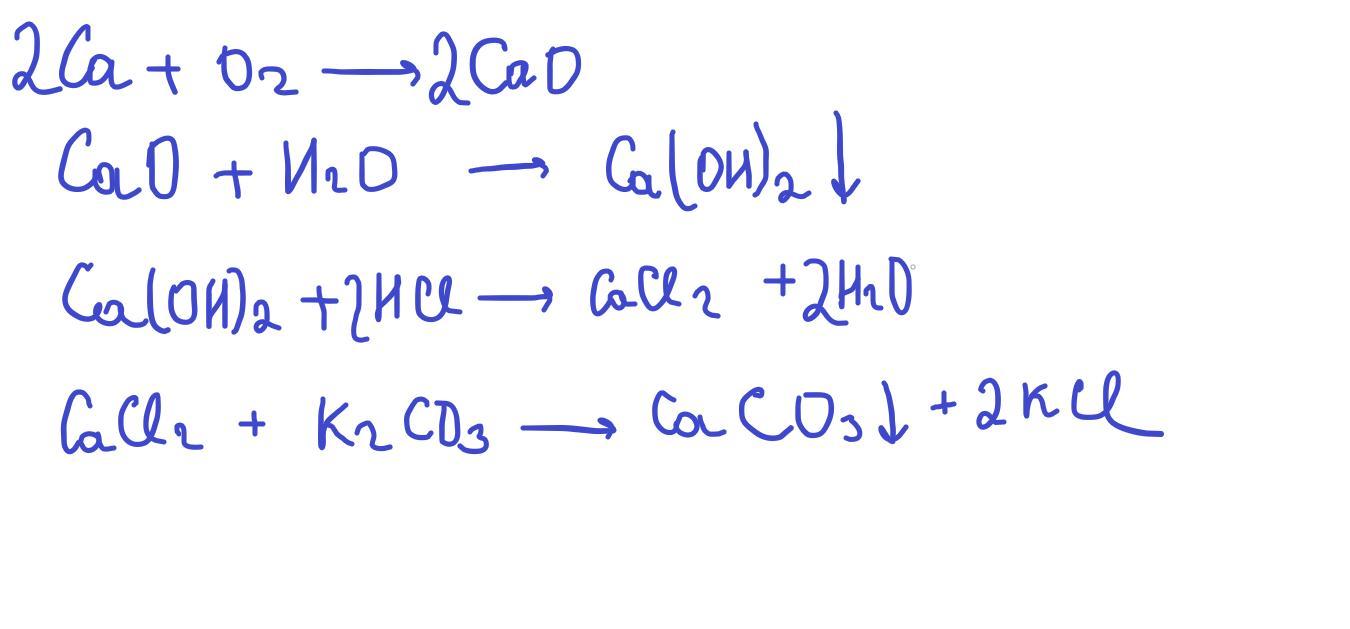 2Ca + O₂ → 2CaO
CaO + H₂O → Ca(OH)₂ ↓
Ca(OH)₂ + 2HCl → CaCl₂ + 2H₂O
CaCl₂ + K₂CO₃ → CaCO₃ ↓ + 2KCl